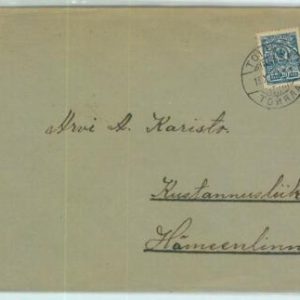 Arvi A. Karisto.
Kustannusliik
Hämeenlinn